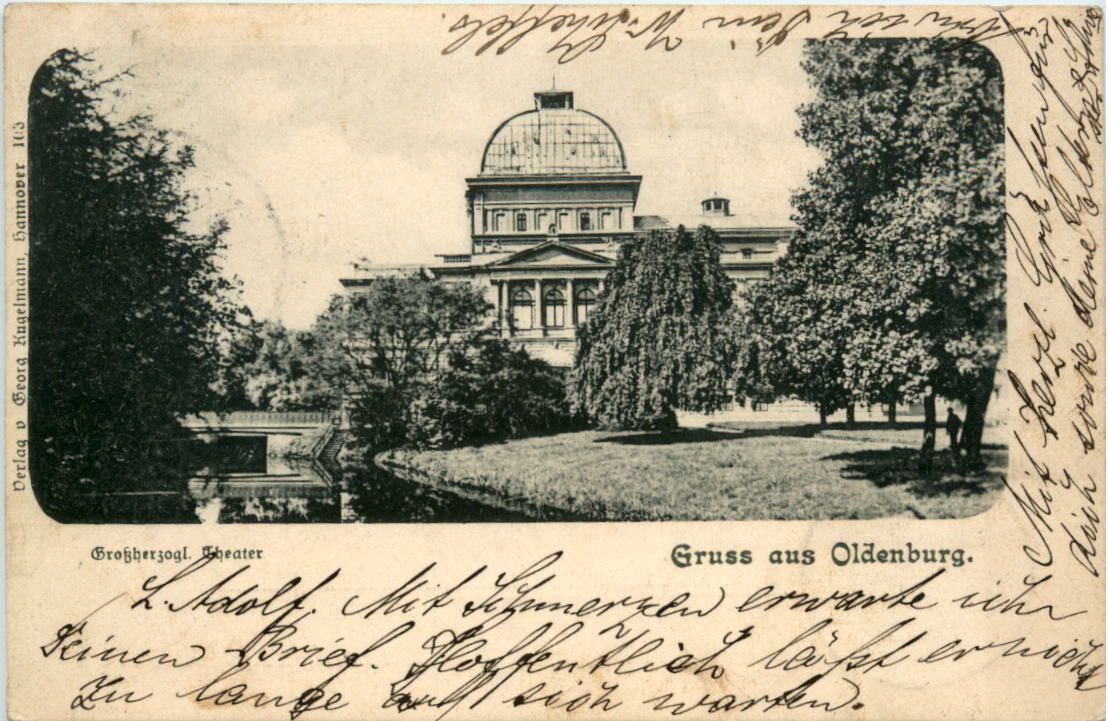 Verlag v Georg Kugelmann, Hannover 103
Großherzogl. Theater
Gruss aus Oldenburg.
L. Adolf. Mit Schmerzen erwarte ich
Deinen Brief. Hoffentlich läßt er nicht
zu lange auf sich warten.
Mit herzl. Grüßen
dich sowie deine Eltern
Dein W. Scheffels